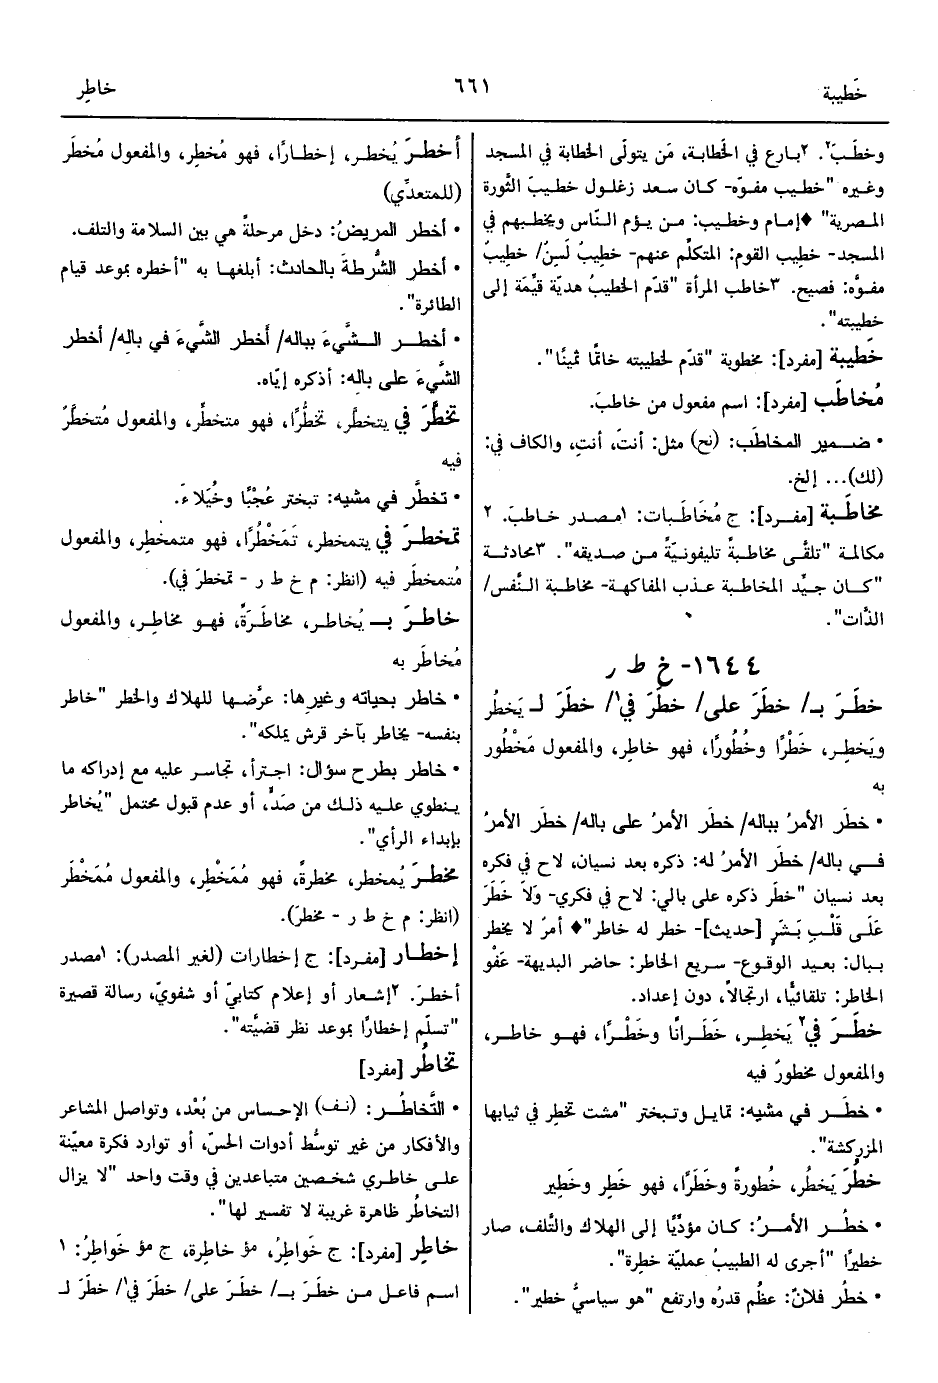 خَطيبة
٦٦١
خاطِر
وخطَبَ٢. ٢بارع في الخَطابة، مَن يتولَّى الخطابة في المسجد
وغيره "خطيب مفوّه- كان سعد زغلول خطيبَ الثَّورة
المصرية" ♦إمام وخطيب: مـن يـؤم النّاس ويخطبهم في
المسجد- خطيب القوم: المتكلِّم عنهم- خطيبٌ لَسِنٌ/ خطيبٌ
مفوَّه: فصيح. ٣خاطب المرأة "قدّم الخطيبُ هديّة قيِّمَة إلى
خطيبته".
خَطيبة [مفرد]: مخطوبة "قدّم لخطيبته خاتمًا ثمينًا".
مُخاطَب [مفرد]: اسم مفعول من خاطبَ.
• ضـمير المخاطَب: (نح) مثل: أنتَ، أنتِ، والكاف في:
(لك)... إلخ.
مخاطَبة [مفـرد]: ج مُخَاطَبات: ١مـصدر خـاطبَ. ٢
مكالمة "تلقَّى مخاطبةً تليفونيّةً مـن صـديقه". ٣محادثـة
"كـان جيِّد المخاطبة عـذب المفاكهة- مخاطبة النَّفس/
الذَّات".
١٦٤٤- خ ط ر
خطَرَ بـ/ خطَرَ على/ خطَرَ في١/ خطَرَ لـ يَخطُر
ويَخطِر، خَطْرًا وخُطُورًا، فهو خاطِر، والمفعول مَخْطُور
به
• خطَر الأمرُ بباله/ خطَر الأمرُ على باله/ خطَر الأمرُ
فـي باله/ خطَر الأمرُ له: ذكره بعد نسيان، لاح في فكره
بعد نسيان "خطَر ذكره على بالي: لاح في فكري- وَلاَ خَطَرَ
عَلَى قَلْبِ بَشَرٍ [حديث]- خطر له خاطر" ♦ أمرٌ لا يخطر
بـبال: بعـيد الوقـوع- سـريع الخاطر: حاضر البديهة- عَفْوَ
الخاطر: تلقائيًّا، ارتجالاً، دون إعداد.
خطَـرَ في٢ يَخطِـر، خَطَـرانًا وخَطْـرًا، فهـو خاطـر،
والمفعول مخطورٌ فيه
• خطَـر في مشيه: تمايـل وتـبختر "مشت تخطِر في ثيابها
المزركشة".
خطُرَ يَخطُر، خُطورةً وخَطَرًا، فهو خَطِر وخَطير
• خطُـر الأمـرُ: كـان مؤدِّيًا إلى الهلاك والتَّلف، صار
خطيرًا "أجرى له الطبيبُ عمليّة خطِرة".
• خطُر فلانٌ: عظُم قدرُه وارتفع "هو سياسيٌّ خطير".
أخطرَ يُخطر، إخطارًا، فهو مُخطِر، والمفعول مُخطَر
(للمتعدِّي)
• أخطر المريضُ: دخل مرحلةً هي بين السلامة والتلف.
• أخطر الشُّرطةَ بالحادث: أبلغها به "أخطره بموعد قيام
الطائرة".
• أخطـر الـشَّيءَ بباله/ أخطر الشَّيءَ في باله/ أخطر
الشَّيءَ على باله: أذكره إيّاه.
تخطَّرَ في يتخطَّر، تخطُّرًا، فهو متخطِّر، والمفعول مُتخطَّرٌ
فيه
• تخطَّر في مشيه: تبختر عُجْبًا وخُيَلاءَ.
تمخطرَ في يتمخطر، تَمَخْطُرًا، فهو متمخطِر، والمفعول
مُتمخطَر فيه (انظر: م خ ط ر - تمخطرَ في).
خاطـرَ بـ يُخاطـر، مخاطَـرَةً، فهـو مخاطِـر، والمفعول
مُخاطَر به
• خاطر بحياته وغيرها: عرَّضها للهلاك والخطر "خاطر
بنفسه- يخاطر بآخر قرش يملكه".
• خاطر بطرح سؤال: اجترأ، تجاسر عليه مع إدراكه ما
يـنطوي علـيه ذلـك من صَدٍّ، أو عدم قبول محتمل "يُخاطر
بإبداء الرأي".
مخطرَ يُمخطر، مخطرةً، فهو مُمَخْطِر، والمفعول مُمَخْطَر
(انظر: م خ ط ر - مخطرَ).
إخطـار [مفرد]: ج إخطارات (لغير المصدر): ١مصدر
أخطرَ. ٢إشعار أو إعلام كتابيّ أو شفويّ، رسالة قصيرة
"تسلّم إخطارًا بموعد نظر قضيَّته".
تخاطُر [مفرد]
• التَّخاطُـر: (نف) الإحساس من بُعْد، وتواصل المشاعر
والأفكار من غير توسُّط أدوات الحسّ، أو توارد فكرة معيّنة
علـى خاطري شخصين متباعدين في وقت واحد "لا يزال
التخاطُر ظاهرة غريبة لا تفسير لها".
خاطِر [مفرد]: ج خَواطِرُ، مؤ خاطِرة، ج مؤ خَواطِرُ: ١
اسم فاعل من خطَرَ بـ/ خطَرَ على/ خطَرَ في١/ خطَرَ لـ